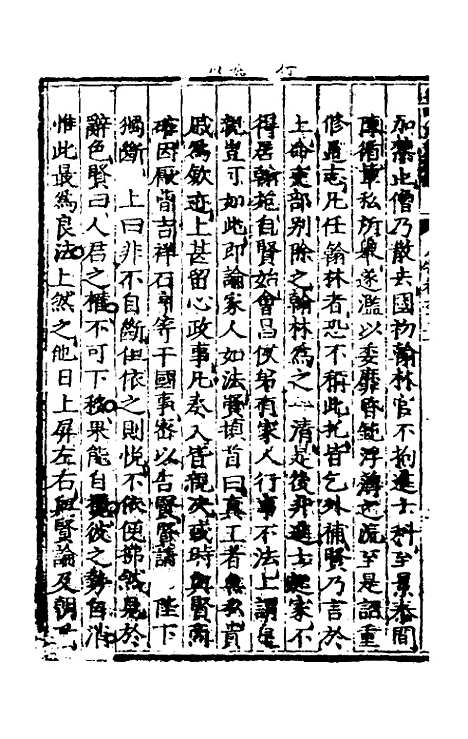 加禁止僧乃散去國初翰林官不拘進士科至景泰間
陳循輩私所舉遂濫以委靡昏鈍浮薄之流至是詔重
修志凡任翰林者恐不稱此托皆乞外補賢乃言於
上命吏部別除之翰林為之一清是後非進士起家不
得居翰苑自賢始會昌侯弟有家人行事不法上謂是
豈可如此即論家人如法賢頓首曰真工者無私貴
戚為斂迹上甚留心政事凡奏入皆親决或時與賢商
確因厭曹吉祥石亨等干國事密以告賢賢請 陛下
獨斷 上曰非不自斷但依之則悅不依便怫然見於
辭色賢曰人君之權不可下移果能自操彼之勢自消
惟此最為良法上然之他日上屏左右與賢論及朝